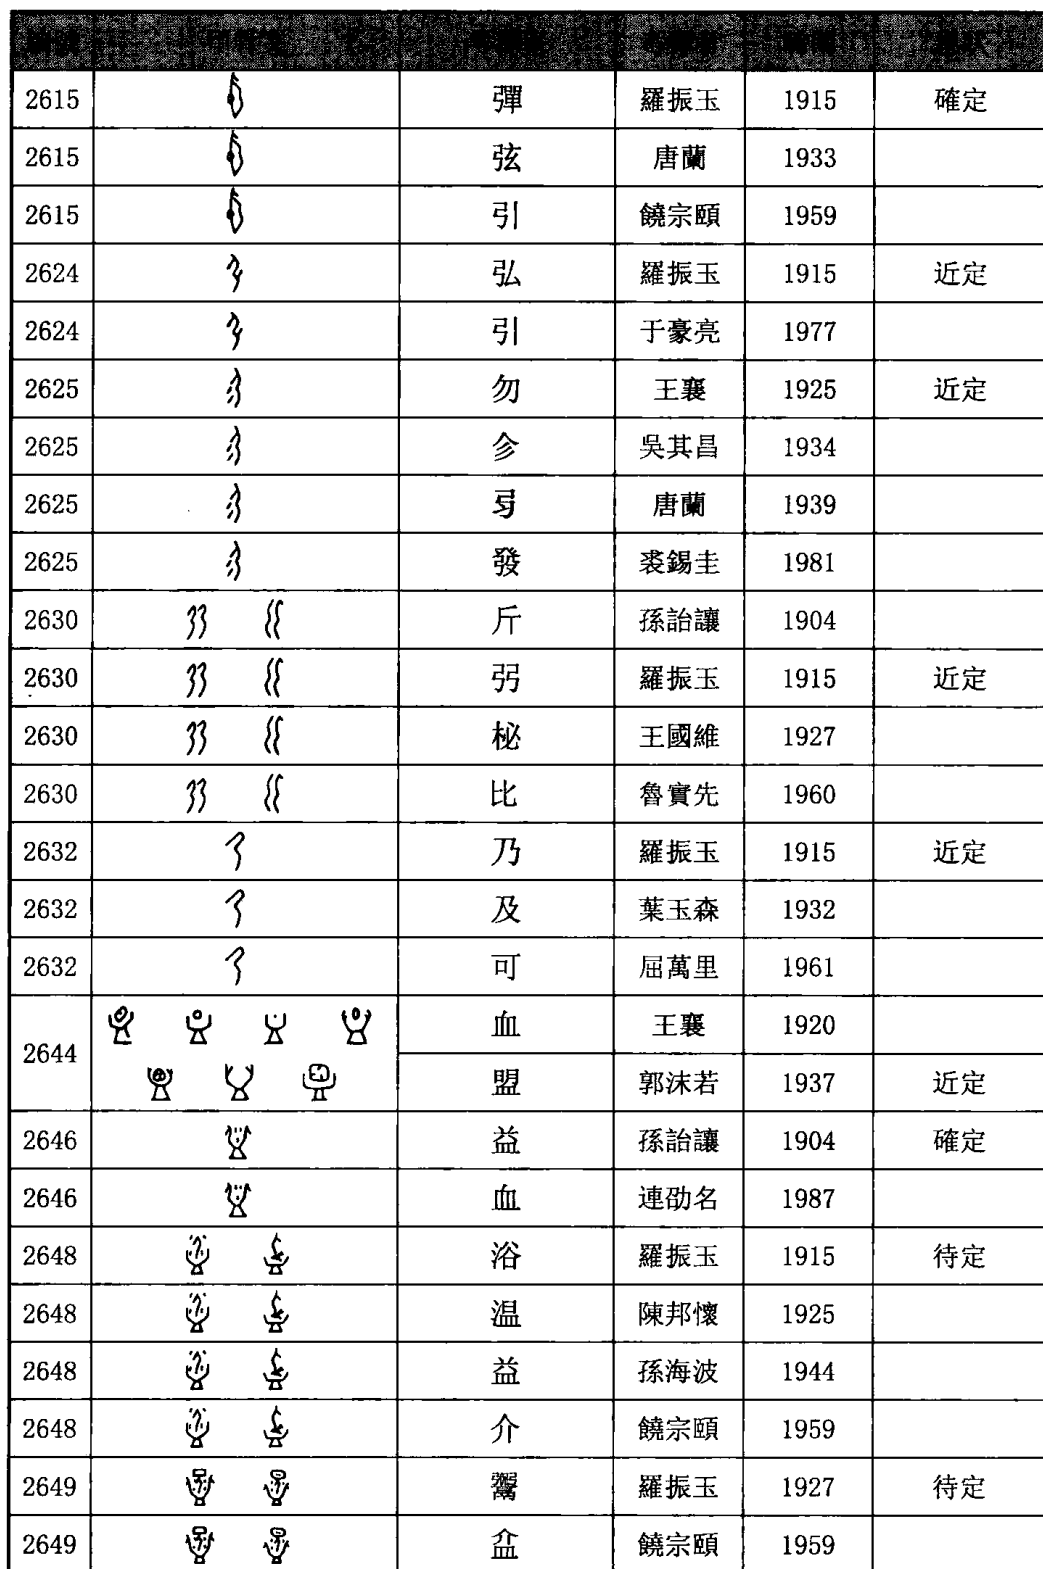 2615 彈 羅振玉 1915 確定
2615 弦 唐蘭 1933
2615 引 饒宗頤 1959
2624 弘 羅振玉 1915 近定
2624 引 于豪亮 1977
2625 勿 王襄 1925 近定
2625 㐱 吳其昌 1934
2625 唐蘭 1939
2625 發 裘錫圭 1981
2630 斤 孫詒讓 1904
2630 弜 羅振玉 1915 近定
2630 柲 王國維 1927
2630 比 魯實先 1960
2632 乃 羅振玉 1915 近定
2632 及 葉玉森 1932
2632 可 屈萬里 1961
2644 血 王襄 1920
盟 郭沫若 1937 近定
2646 益 孫詒讓 1904 確定
2646 血 連劭名 1987
2648 浴 羅振玉 1915 待定
2648 温 陳邦懷 1925
2648 益 孫海波 1944
2648 介 饒宗頤 1959
2649 羅振玉 1927 待定
2649 饒宗頤 1959